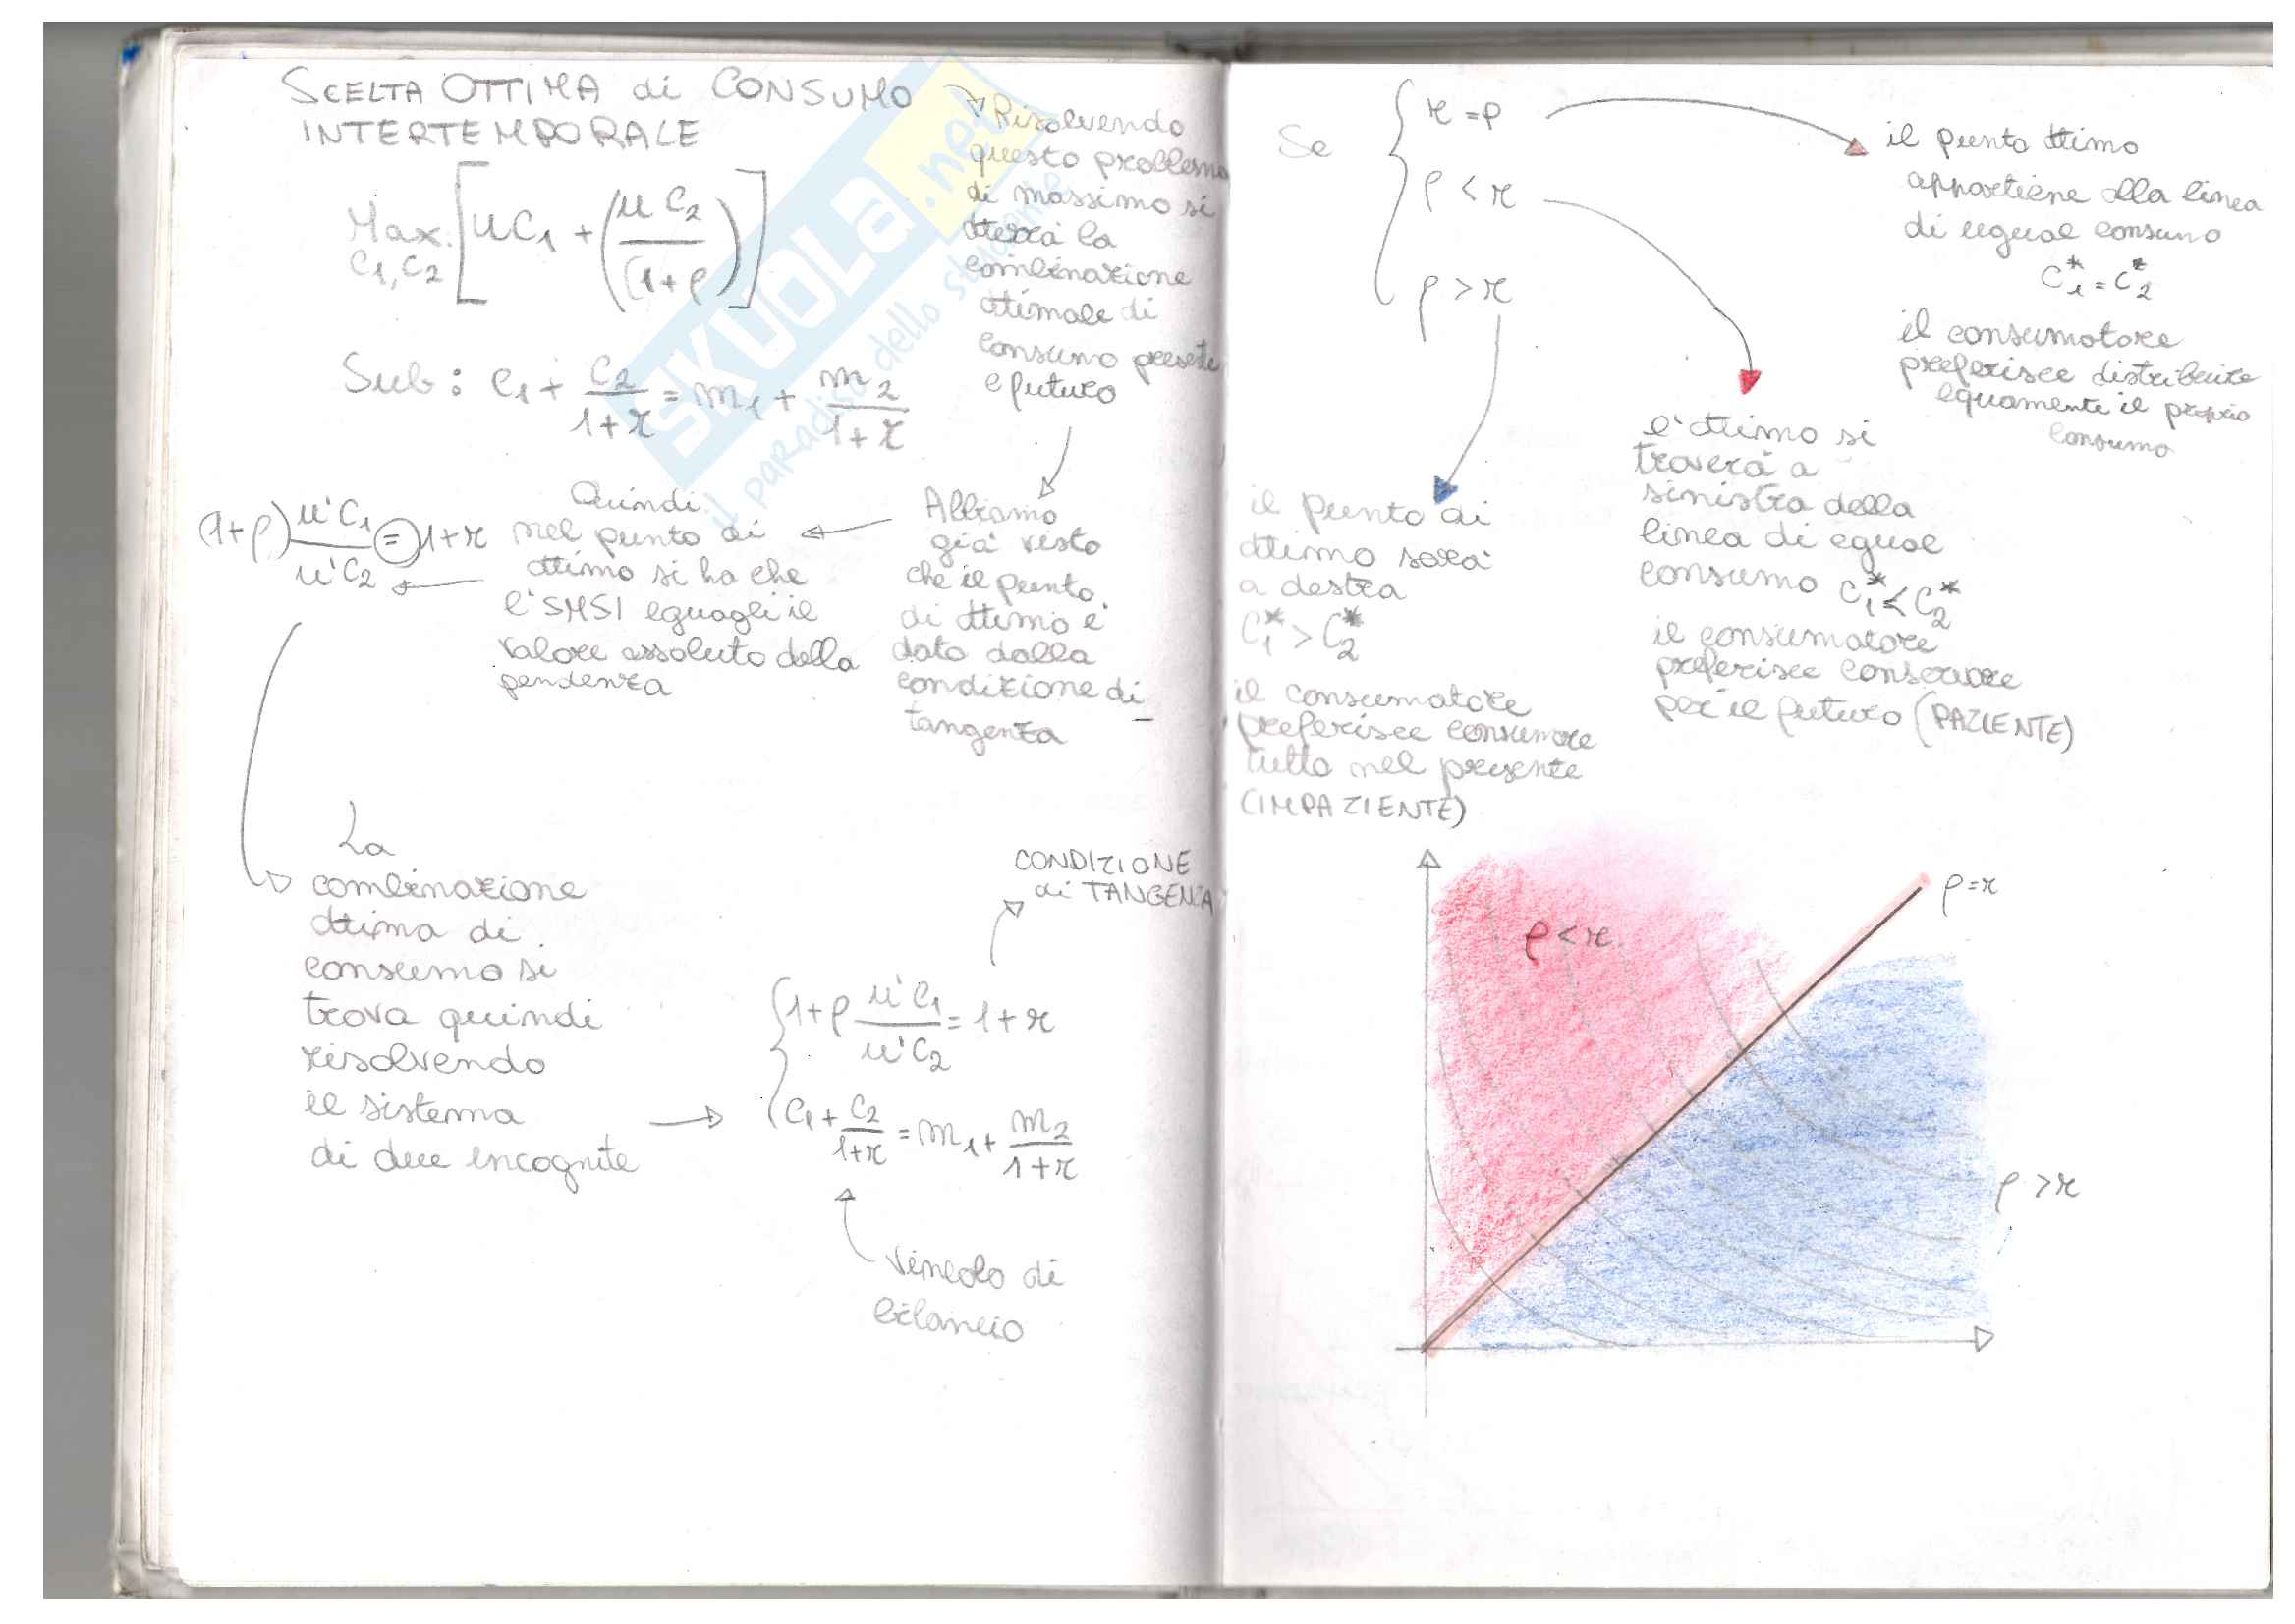 SCELTA OTTIMA di CONSUMO
INTERTEMPORALE
Max. [uC1 + (u C2 / (1+ρ))]
C1, C2
Sub: C1 + C2/1+r = m1 + m2/1+r
Risolvendo
questo problema
di massimo si
otterrà la
combinazione
ottimale di
consumo presente
e futuro
Abbiamo
già visto
che il punto
di ottimo è
dato dalla
condizione di
tangenza
Quindi
nel punto di
ottimo si ha che
l'SMSI eguagli il
valore assoluto della
pendenza
(1+ρ) u'C1/u'C2 = 1+r
La
combinazione
ottima di
consumo si
trova quindi
risolvendo
il sistema
di due incognite
CONDIZIONE
di TANGENZA
1+ρ u'C1/u'C2 = 1+r
C1 + C2/1+r = m1 + m2/1+r
vincolo di
bilancio
SKUOLA.net
il paradiso dello studente
Se
r = ρ
ρ < r
ρ > r
il punto ottimo
appartiene alla linea
di ugual consumo
C1* = C2*
il consumatore
preferisce distribuire
equamente il proprio
consumo
l'ottimo si
troverà a
sinistra della
linea di egual
consumo C1* < C2*
il consumatore
preferisce conservare
per il futuro (PAZIENTE)
il punto di
ottimo sarà
a destra
C1* > C2*
il consumatore
preferisce consumare
tutto nel presente
(IMPAZIENTE)
ρ = r
ρ < r
ρ > r